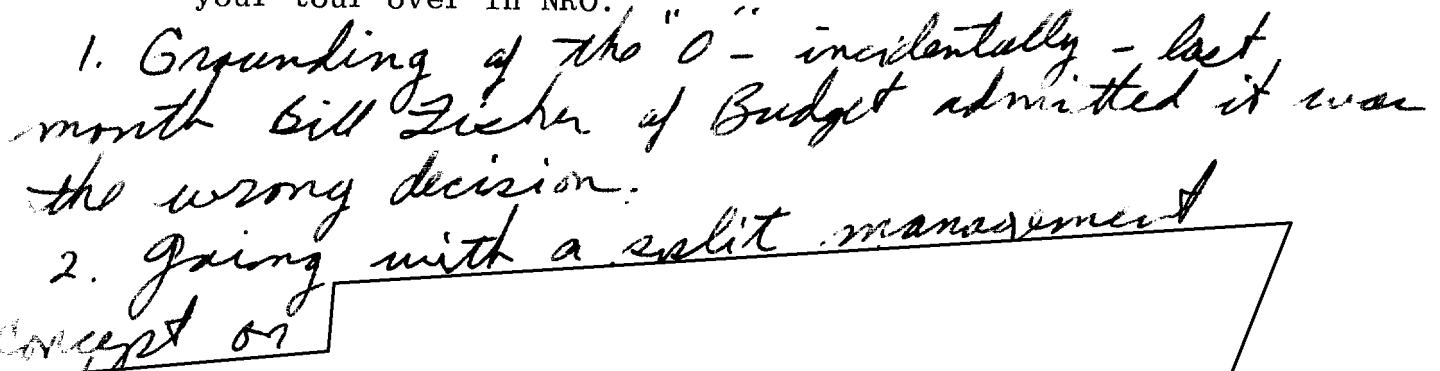 your tour over in NRO.
1. Grounding of the "O" - incidentally - last
month Bill Fisher of Budget admitted it was
the wrong decision.
2. Going with a split management
concept on